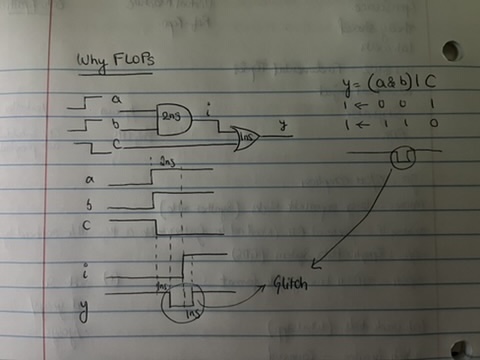 Why FLOPs
a
b
c
2ns
i
1ns
y
y = (a & b) | C
1 ← 0 0 1
1 ← 1 1 0
2ns
a
b
C
i
y
1ns
1ns
Glitch